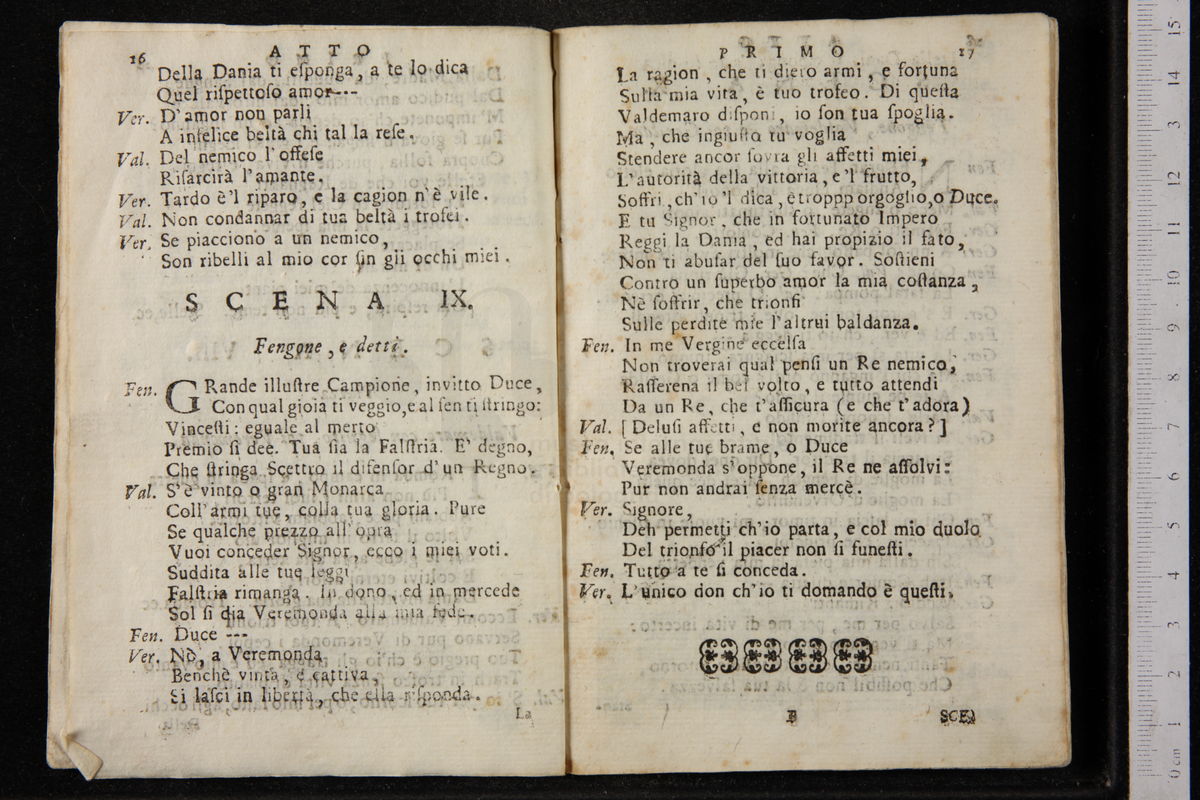 16 ATTO
Della Dania ti eſponga, a te lo dica
Quel riſpettoſo amor---
Ver. D'amor non parli
A infelice beltà chi tal la reſe.
Val. Del nemico l'offeſe
Riſarcirà l'amante.
Ver. Tardo è'l riparo, e la cagion n'è vile.
Val. Non condannar di tua beltà i trofei.
Ver. Se piacciono a un nemico,
Son ribelli al mio cor ſin gli occhi miei.
SCENA IX.
Fengone, e detti.
Fen. GRande illuſtre Campione, invitto Duce,
Con qual gioia ti veggio, e al ſen ti ſtringo:
Vinceſti: eguale al merto
Premio ſi dee. Tua ſia la Falſtria. E' degno,
Che ſtringa Scettro il difenſor d'un Regno.
Val. S'è vinto o gran Monarca
Coll'armi tue, colla tua gloria. Pure
Se qualche prezzo all'opra
Vuoi conceder Signor, ecco i miei voti.
Suddita alle tue leggi
Falſtria rimanga. In dono, ed in mercede
Sol ſi dia Veremonda alla mia fede.
Fen. Duce ---
Ver. Nò, a Veremonda
Benchè vinta, e cattiva,
Si laſci in libertà, che ella riſponda.
La
PRIMO 17
La ragion, che ti diero armi, e fortuna
Sulla mia vita, è tuo trofeo. Di queſta
Valdemaro diſponi, io ſon tua ſpoglia.
Ma, che ingiuſto tu voglia
Stendere ancor ſovra gli affetti miei,
L'autorità della vittoria, e'l frutto,
Soffri, ch'io 'l dica, è troppp orgoglio, o Duce.
E tu Signor, che in fortunato Impero
Reggi la Dania, ed hai propizio il fato,
Non ti abuſar del ſuo favor. Soſtieni
Contro un ſuperbo amor la mia coſtanza,
Nè ſoffrir, che trionfi
Sulle perdite mie l'altrui baldanza.
Fen. In me Vergine eccelſa
Non troverai qual penſi un Re nemico;
Rafferena il bel volto, e tutto attendi
Da un Re, che t'aſſicura (e che t'adora)
Val. [Deluſi affetti, e non morite ancora?]
Fen. Se alle tue brame, o Duce
Veremonda s'oppone, il Re ne aſſolvi:
Pur non andrai ſenza mercè.
Ver. Signore,
Deh permetti ch'io parta, e col mio duolo
Del trionfo il piacer non ſi funeſti.
Fen. Tutto a te ſi conceda.
Ver. L'unico don ch'io ti domando è queſti.
B SCE-